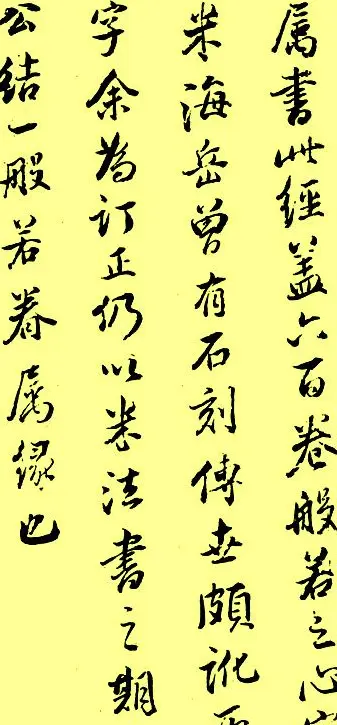 属書此經蓋六百卷般若之心
米海岳曾有石刻傳世頗訛
字余為訂正仍以米法書之期
公結一般若眷属緣也